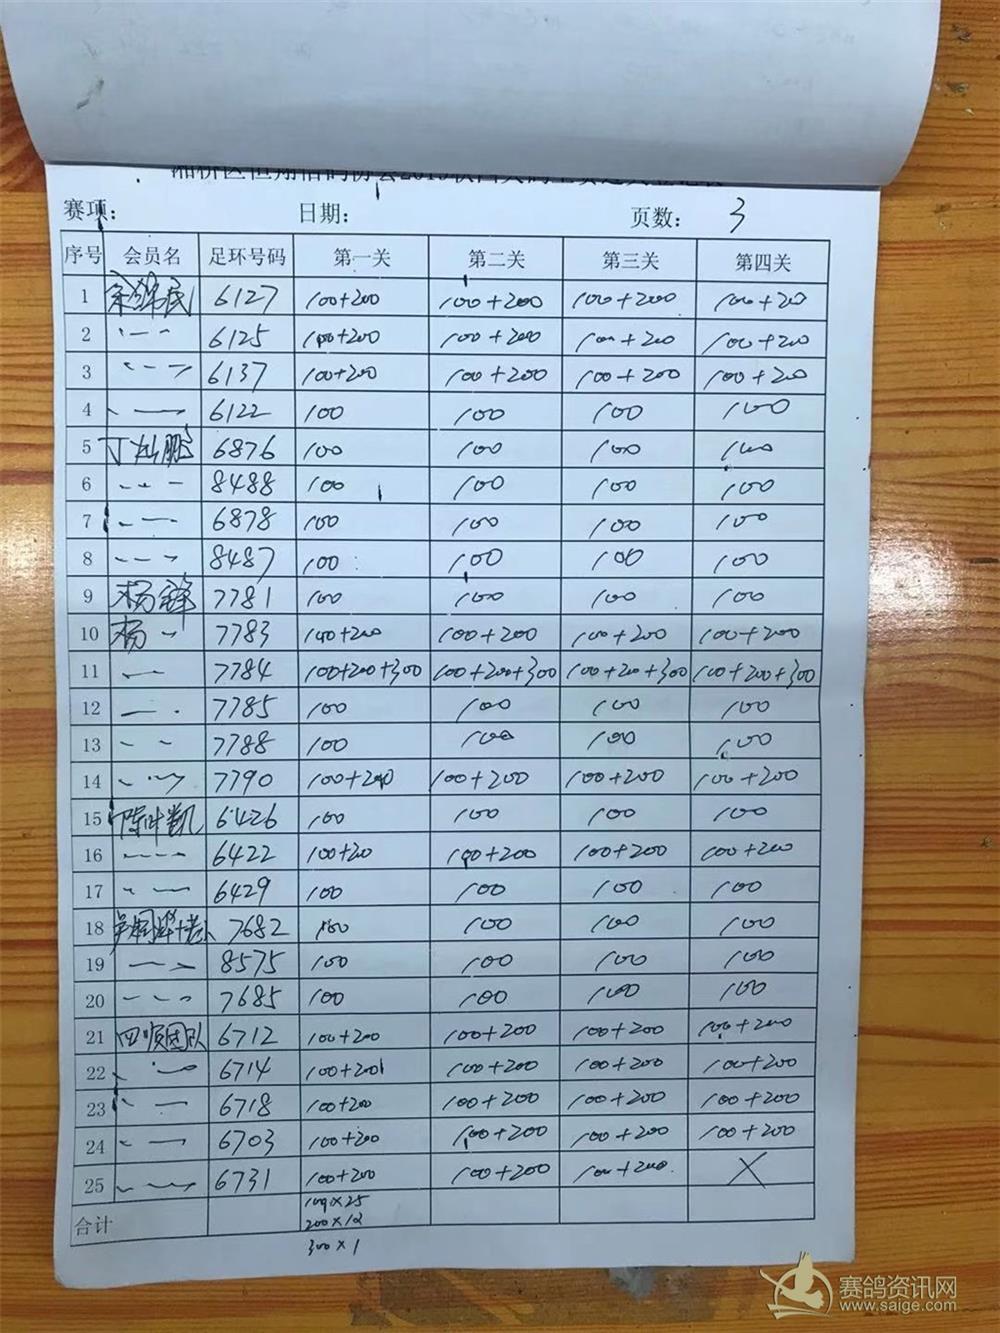 赛项: 日期: 页数: 3
序号 会员名 足环号码 第一关 第二关 第三关 第四关
1 6127 100+200 100+200 100+200 100+200
2 6125 100+200 100+200 100+200 100+200
3 6137 100+200 100+200 100+200 100+200
4 6122 100 100 100 100
5 丁灿鹏 6876 100 100 100 100
6 8488 100 100 100 100
7 6878 100 100 100 100
8 8487 100 100 100 100
9 杨锋 7781 100 100 100 100
10 杨 7783 100+200 100+200 100+200 100+200
11 7784 100+200+300 100+200+300 100+200+300 100+200+300
12 7785 100 100 100 100
13 7788 100 100 100 100
14 7790 100+200 100+200 100+200 100+200
15 陈叶凯 6426 100 100 100 100
16 6422 100+20 100+200 100+200 100+200
17 6429 100 100 100 100
18 7682 100 100 100 100
19 8575 100 100 100 100
20 7685 100 100 100 100
21 四顺团队 6712 100+200 100+200 100+200 100+200
22 6714 100+200 100+200 100+200 100+200
23 6718 100+200 100+200 100+200 100+200
24 6703 100+200 100+200 100+200 100+200
25 6731 100+200 100+200 100+200 X
合计 100×25
200×12
300×1
赛鸽资讯网
www.saige.com